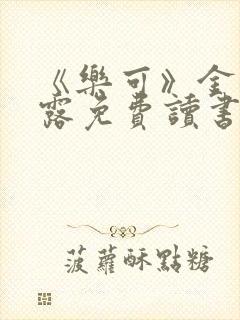 《樂可》全
露免費讀書
菠蘿酥點糖